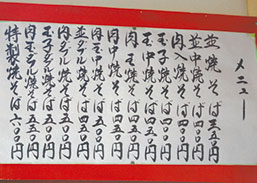 メニュー
並焼そば三五〇円
並中焼そば四〇〇円
肉入焼そば四五〇円
玉子焼そば四〇〇円
玉中焼そば四五〇円
肉玉焼そば四五〇円
肉中焼そば四五〇円
肉玉中焼そば五〇〇円
並ダブル焼そば四五〇円
肉ダブル焼そば五五〇円
玉子ダブル焼そば五〇〇円
肉玉ダブル焼そば五五〇円
特製焼そば六〇〇円